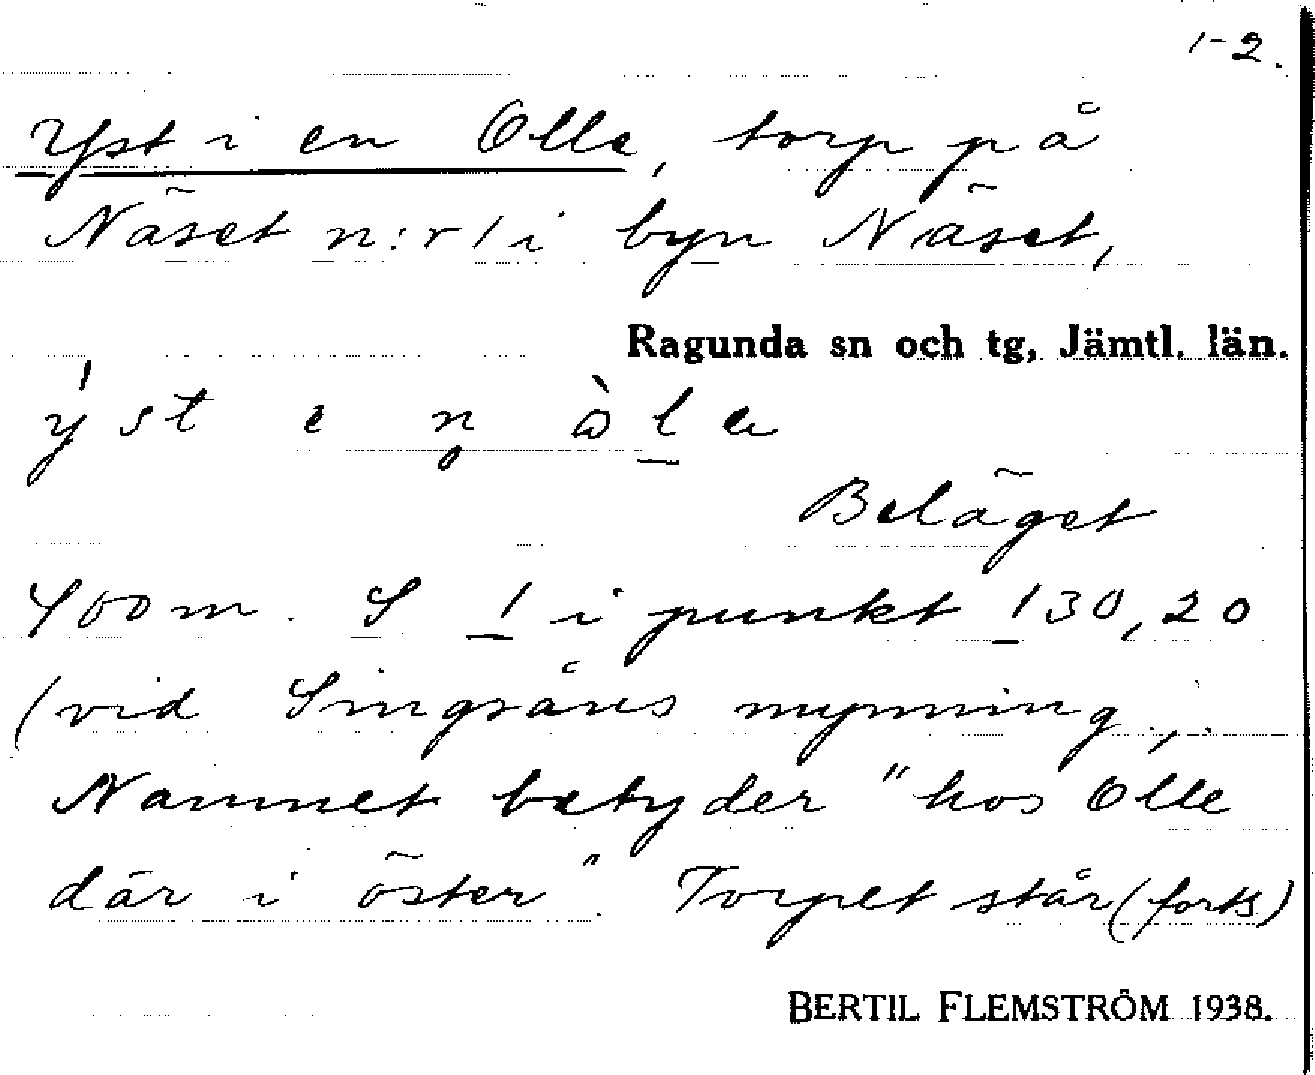 1-2.
Yst i en Olle, torp på
Näset n:r 1 i byn Näset,
Ragunda sn och tg, Jämtl. län.
yst e n
Beläget
400 m. S 1 i punkt 130,20
(vid Singsåns mynning,
Namnet betyder "hos Olle
där i öster". Torpet står (forts)
BERTIL FLEMSTRÖM 1938.